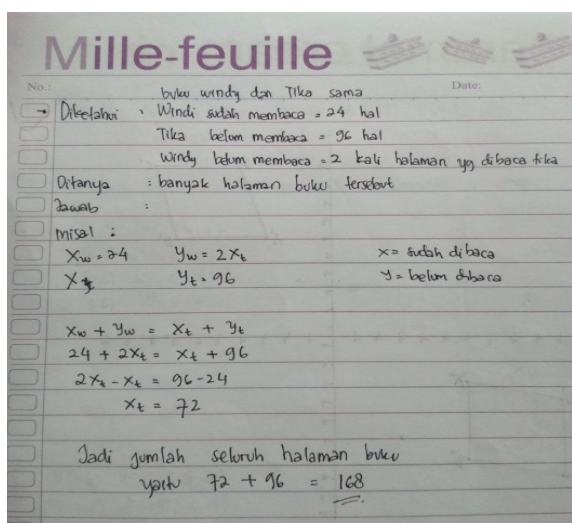 Mille-feuille
No.: Date:
buku windy dan Tika sama
→ Diketahui : Windi sudah membaca = 24 hal
Tika belum membaca = 96 hal
Windy belum membaca = 2 kali halaman yg dibaca tika
Ditanya : banyak halaman buku tersebut
Jawab :
misal :
Xw = 24 Yw = 2Xt x = sudah dibaca
Xt Yt = 96 y = belum dibaca
Xw + Yw = Xt + Yt
24 + 2Xt = Xt + 96
2Xt - Xt = 96 - 24
Xt = 72
Jadi jumlah seluruh halaman buku
yaitu 72 + 96 = 168